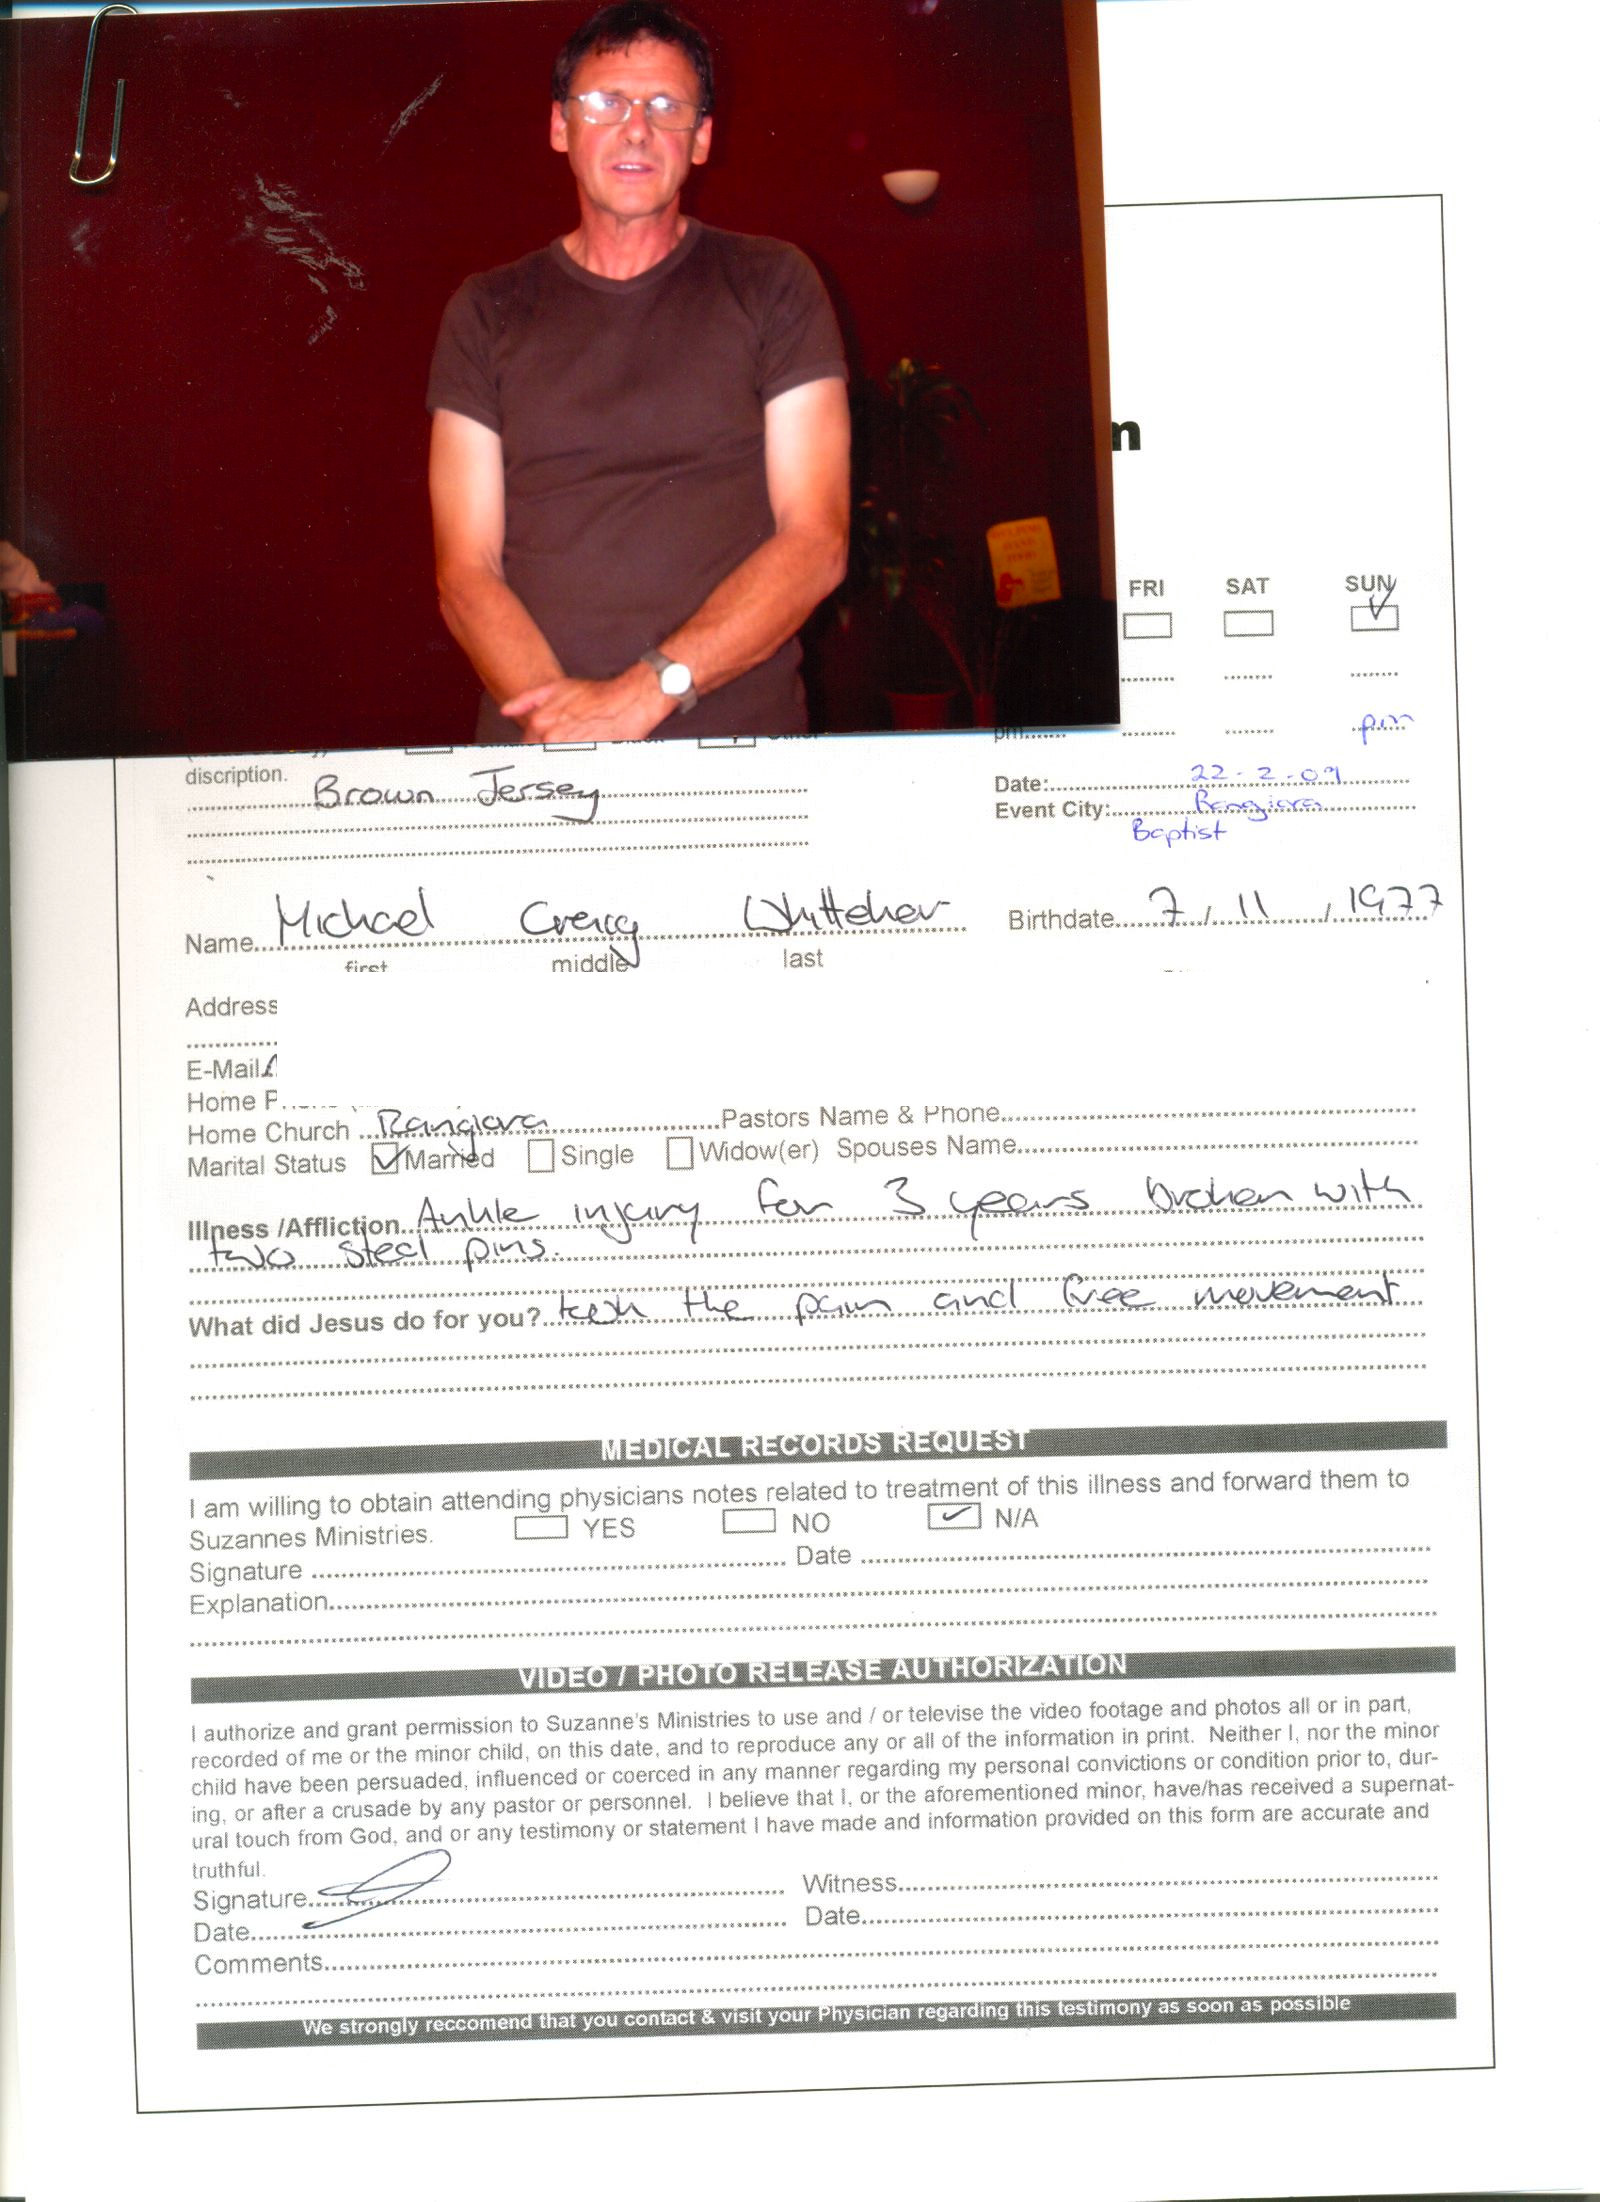 m
FRI SAT SUN
pm....... pm
discription.
Brown Jersey
Date: 22-2-09
Event City: Rangiora
Baptist
Name Michael Creig Birthdate 7/11/1977
first middle last
Address
E-Mail
Home P
Home Church Rangiora Pastors Name & Phone
Marital Status Married Single Widow(er) Spouses Name
Illness /Affliction Ankle injury for 3 years broken with
two steel pins.
What did Jesus do for you? took the pain and free movement
MEDICAL RECORDS REQUEST
I am willing to obtain attending physicians notes related to treatment of this illness and forward them to
Suzannes Ministries. YES NO N/A
Signature Date
Explanation
VIDEO / PHOTO RELEASE AUTHORIZATION
I authorize and grant permission to Suzanne's Ministries to use and / or televise the video footage and photos all or in part,
recorded of me or the minor child, on this date, and to reproduce any or all of the information in print. Neither I, nor the minor
child have been persuaded, influenced or coerced in any manner regarding my personal convictions or condition prior to, dur-
ing, or after a crusade by any pastor or personnel. I believe that I, or the aforementioned minor, have/has received a supernat-
ural touch from God, and or any testimony or statement I have made and information provided on this form are accurate and
truthful.
Signature Witness
Date Date
Comments
We strongly reccomend that you contact & visit your Physician regarding this testimony as soon as possible